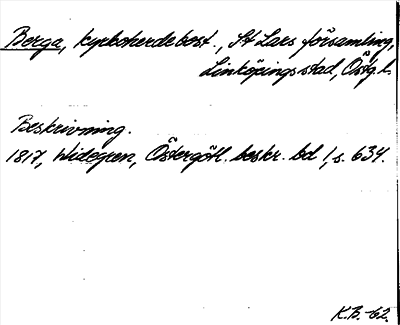 Berga, kyrkoherdebost., St Lars församling,
Linköpings stad, Östg.l.
Beskrivning.
1817, Widegren, Östergötl. beskr. bd 1, s. 634.
K.B.-62.